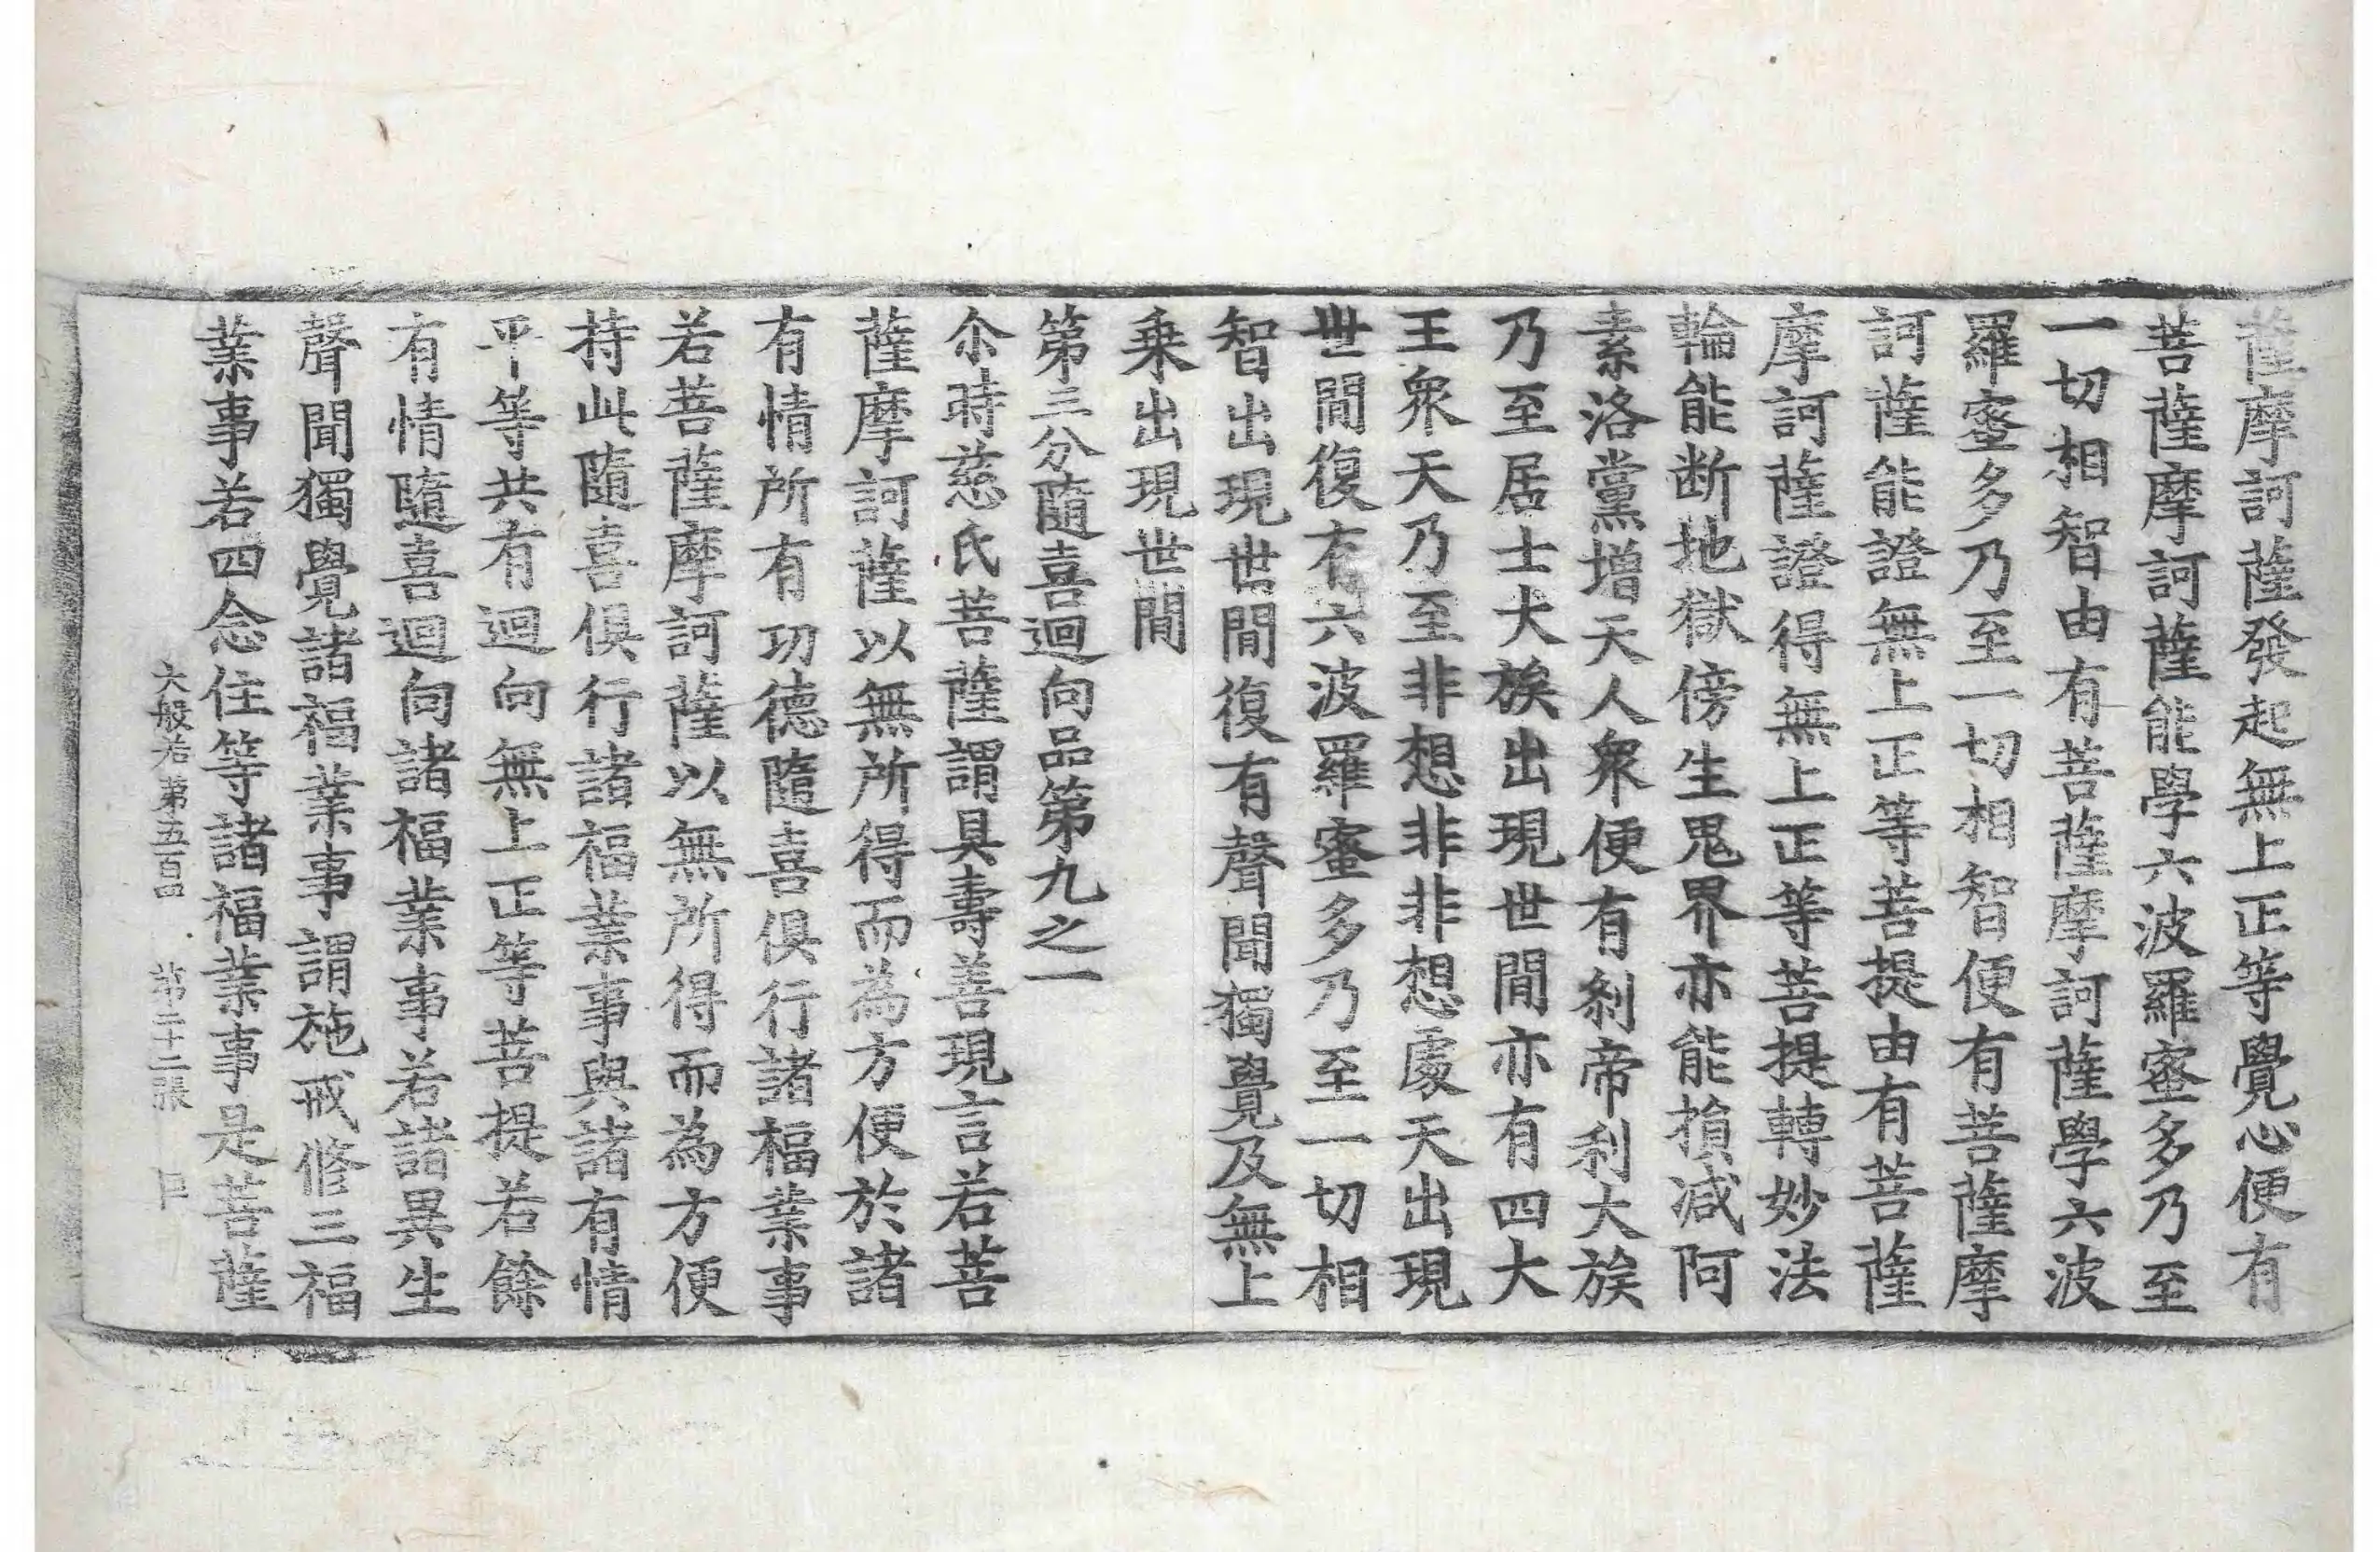 薩摩訶薩發起無上正等覺心便有
菩薩摩訶薩能學六波羅蜜多乃至
一切相智由有菩薩摩訶薩學六波
羅蜜多乃至一切相智便有菩薩摩
訶薩能證無上正等菩提由有菩薩
摩訶薩證得無上正等菩提轉妙法
輪能断地獄傍生鬼界亦能損减阿
素洛黨增天人衆便有剎帝利大族
乃至居士大族出現世間亦有四大
王衆天乃至非想非非想處天出現
世間復有六波羅蜜多乃至一切相
智出現世間復有聲聞獨覺及無上
乗出現世間
第三分隨喜迴向品第九之一
尒時慈氏菩薩謂具壽善現言若菩
薩摩訶薩以無所得而為方便於諸
有情所有功德隨喜俱行諸福業事
若菩薩摩訶薩以無所得而為方便
持此隨喜俱行諸福業事與諸有情
平等共有迴向無上正等菩提若餘
有情隨喜迴向諸福業事若諸異生
聲聞獨覺諸福業事謂施戒修三福
業事若四念住等諸福業事是菩薩
大般若第五百四 第二十二張